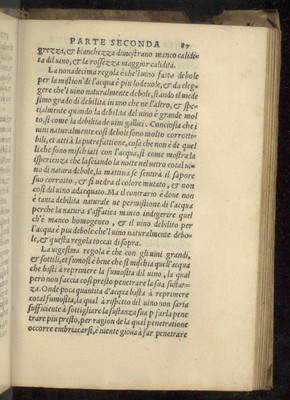 PARTE SECONDA 87
grezza, & bianchezza dimostrano manco calidi-
ta di uino, & la rossezza maggior calidita.
La nonadecima regola è che'l uino fatto debole
per la mistion' de l'acqua è piu lodeuole, & da eleg-
gere che'l uino naturalmente debole, stando il mede
simo grado di debilita in uno che ne l'altro, & spe-
tialmente quando la debilita del uino è grande mol
to, si come la debilita de uini gallici. Conciosia che i
uini naturalmente cosi deboli sono molto corrotti-
bili, et atti à la putrefattione, cosa che non è de quel
li che sono mischiati con l'acqua, si come mostra la
isperienza che lasciando la notte nel uetro cotal ui-
no di natura debole, la mattina se sentirà il sapore
suo corrotto, & si uedrà il colore mutato, & non
cosi del uino adequato. Ma il contrario è doue non
è tanta debilita naturale ne permistione di l'acqua
perche la natura s'affatica manco indigerire quel
ch'è manco homogeneo, & il uino debilito per
l'acqua è piu debole che'l uino naturalmente debo-
le, & questa regola toccai di sopra.
La uigesima regola è che con gli uini grandi,
& sottili, et fumosi è bene che si mischia quell'acqua
che basti à reprimere la fumosita del uino, la qual
però non faccia cosi presto penetrare la sua sustan-
za. Onde poca quantita d'acqua basta à reprimere
cotal fumosita, la qual à rispetto del uino non saria
sufficiente à sottigliare la sustanza sua p farla pene
trare piu presto, per ragion de la qual penetratione
occorre embriacarsi, è niente gioua à far penetrare